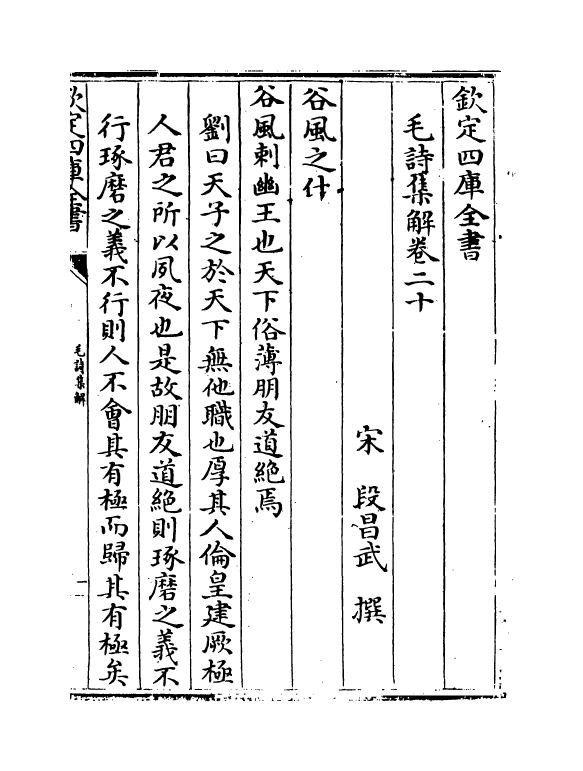 欽定四庫全書
毛詩集解卷二十
宋 段昌武 撰
谷風之什
谷風刺幽王也天下俗薄朋友道絶焉
劉曰天子之於天下無他職也厚其人倫皇建厥極
人君之所以夙夜也是故朋友道絶則琢磨之義不
行琢磨之義不行則人不會其有極而歸其有極矣
欽定四庫全書
毛詩集解
一